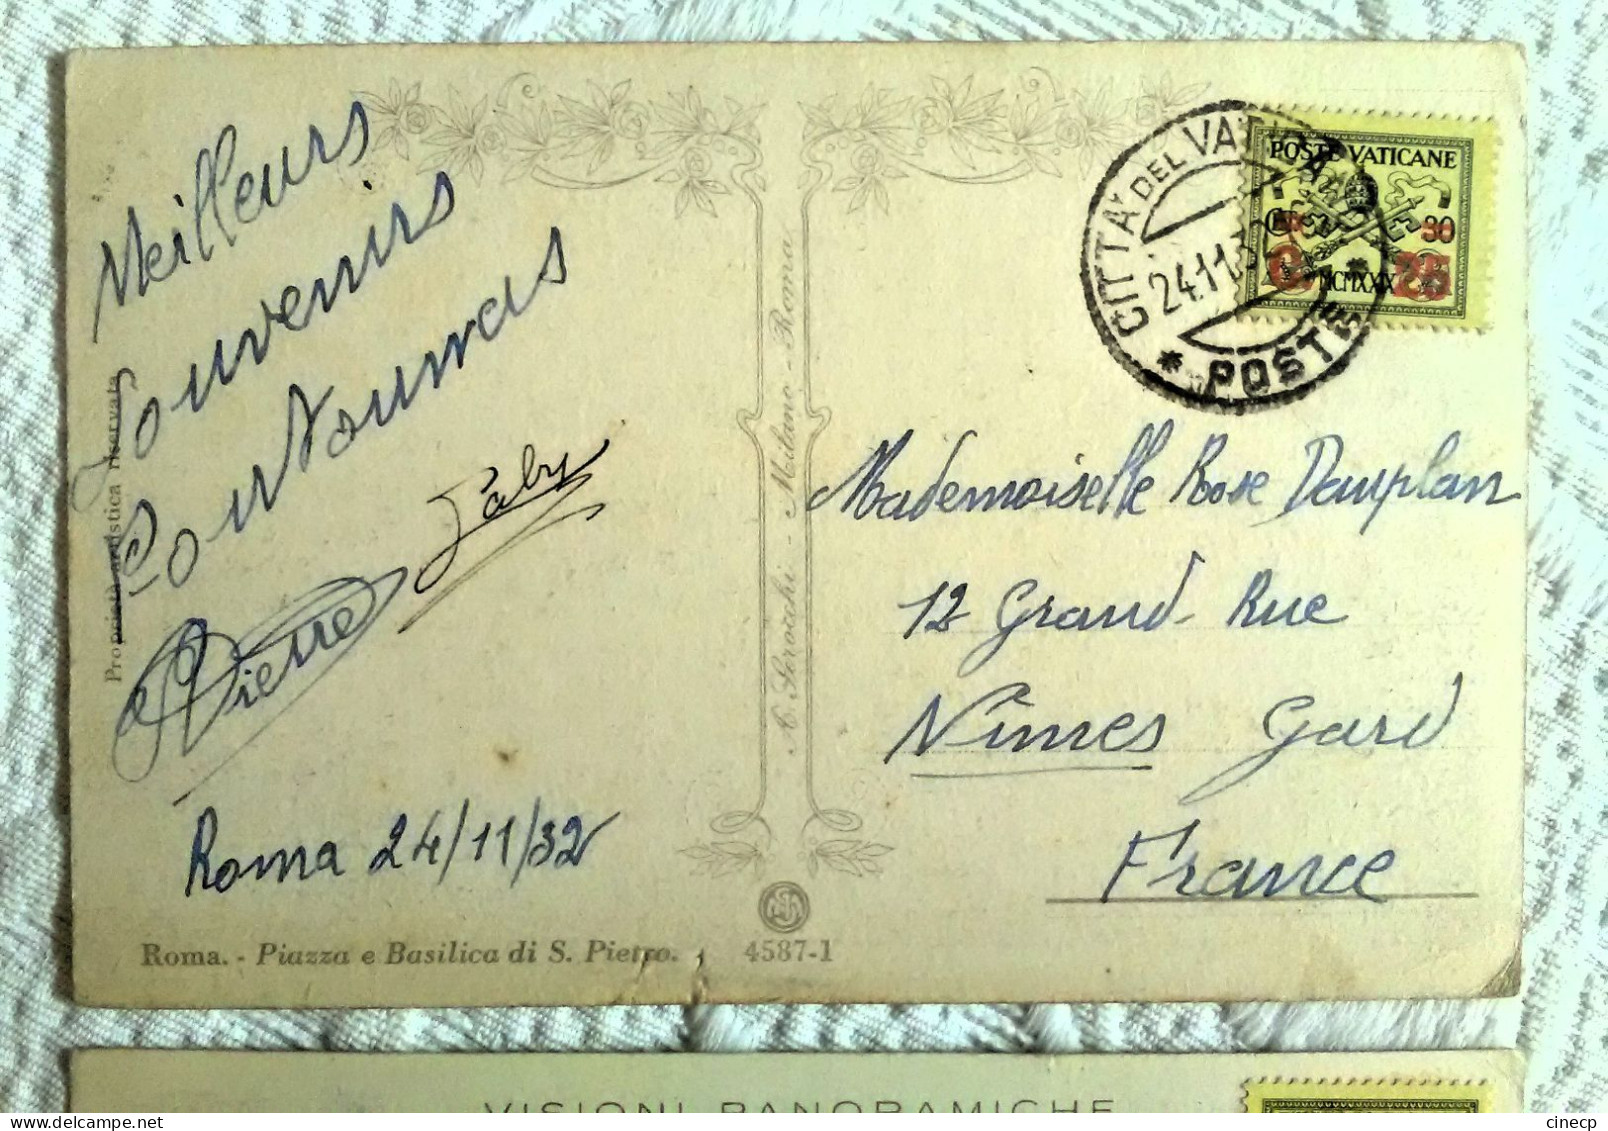 Meilleurs
Souvenirs
Pontoumas
Gaby
Pierre
Roma 24/11/32
Proprietà artistica riservata
Roma. - Piazza e Basilica di S. Pietro. 4587-1
A. Scrocchi - Milano - Roma
CITTÀ DEL VATICANO
24.11.3
* POSTE
POSTE VATICANE
30
C. 25
MCMXXIX
Mademoiselle Rose Dauplan
12 Grand-Rue
Nîmes Gard
France
VISIONI PANORAMICHE
cinecp